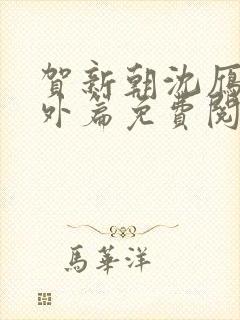 賀新朝沈雁
外篇免費閱
馬華洋